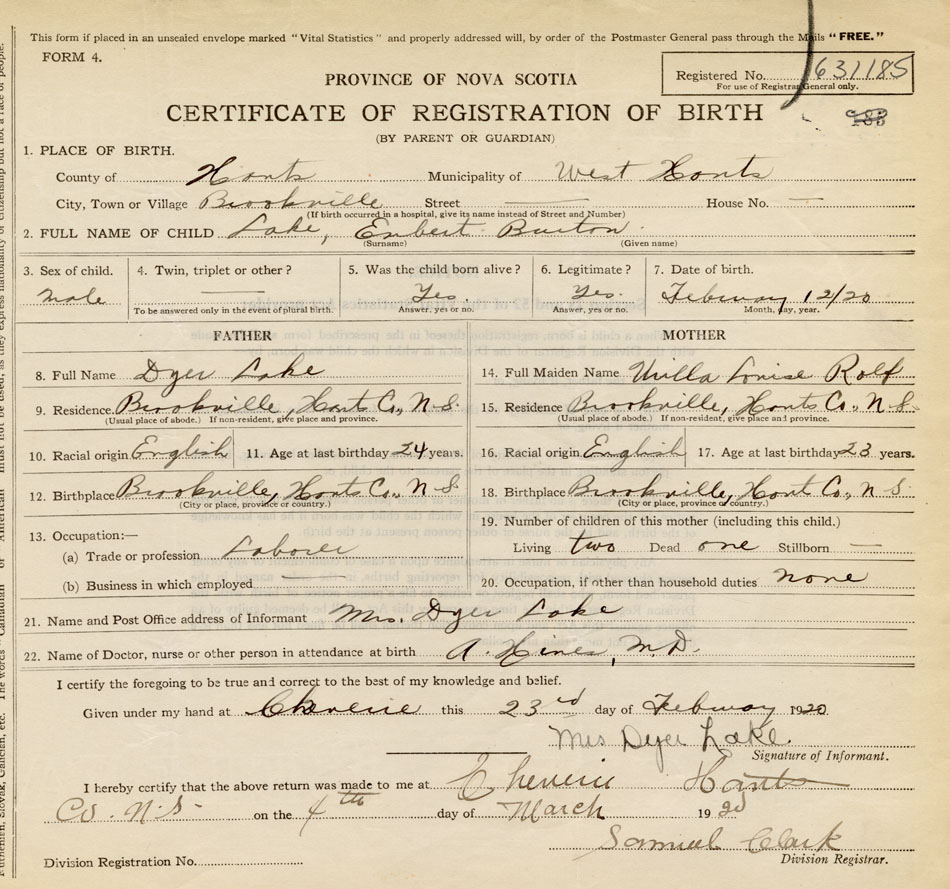 This form if placed in an unsealed envelope marked "Vital Statistics" and properly addressed will, by order of the Postmaster General pass through the Mails "FREE."
FORM 4.
Registered No. 631185
For use of Registrar General only.
PROVINCE OF NOVA SCOTIA
CERTIFICATE OF REGISTRATION OF BIRTH
(BY PARENT OR GUARDIAN)
1. PLACE OF BIRTH.
County of Hants Municipality of West Hants
City, Town or Village Brookville Street House No.
(If birth occurred in a hospital, give its name instead of Street and Number)
2. FULL NAME OF CHILD Lake, Enbert Burton
(Surname) (Given name)
3. Sex of child. 4. Twin, triplet or other? 5. Was the child born alive? 6. Legitimate? 7. Date of birth.
Male Yes. Yes. February 12/20
To be answered only in the event of plural birth. Answer, yes or no. Answer, yes or no. Month, day, year.
FATHER MOTHER
8. Full Name Dyer Lake 14. Full Maiden Name Louise Rolf
9. Residence. Brookville, Hants Co., N-S. 15. Residence Brookville, Hants Co., N-S.
(Usual place of abode.) If non-resident, give place and province. (Usual place of abode.) If non-resident, give place and province.
10. Racial origin English 11. Age at last birthday 24 years. 16. Racial origin English 17. Age at last birthday 23 years.
12. Birthplace Brookville, Hants Co., N-S 18. Birthplace Brookville, Hants Co., N-S.
(City or place, province or country.) (City or place, province or country.)
13. Occupation:— 19. Number of children of this mother (including this child.)
(a) Trade or profession Laborer Living two Dead one Stillborn —
(b) Business in which employed 20. Occupation, if other than household duties none
21. Name and Post Office address of Informant Mrs. Dyer Lake
22. Name of Doctor, nurse or other person in attendance at birth A. Hines, M.D.
I certify the foregoing to be true and correct to the best of my knowledge and belief.
Given under my hand at Cheverie this 23rd day of February 1920
Mrs Dyer Lake.
Signature of Informant.
I hereby certify that the above return was made to me at Cheverie Hants
Co. N.S. on the 4th day of March 1920
Samuel Clark
Division Registration No. Division Registrar.